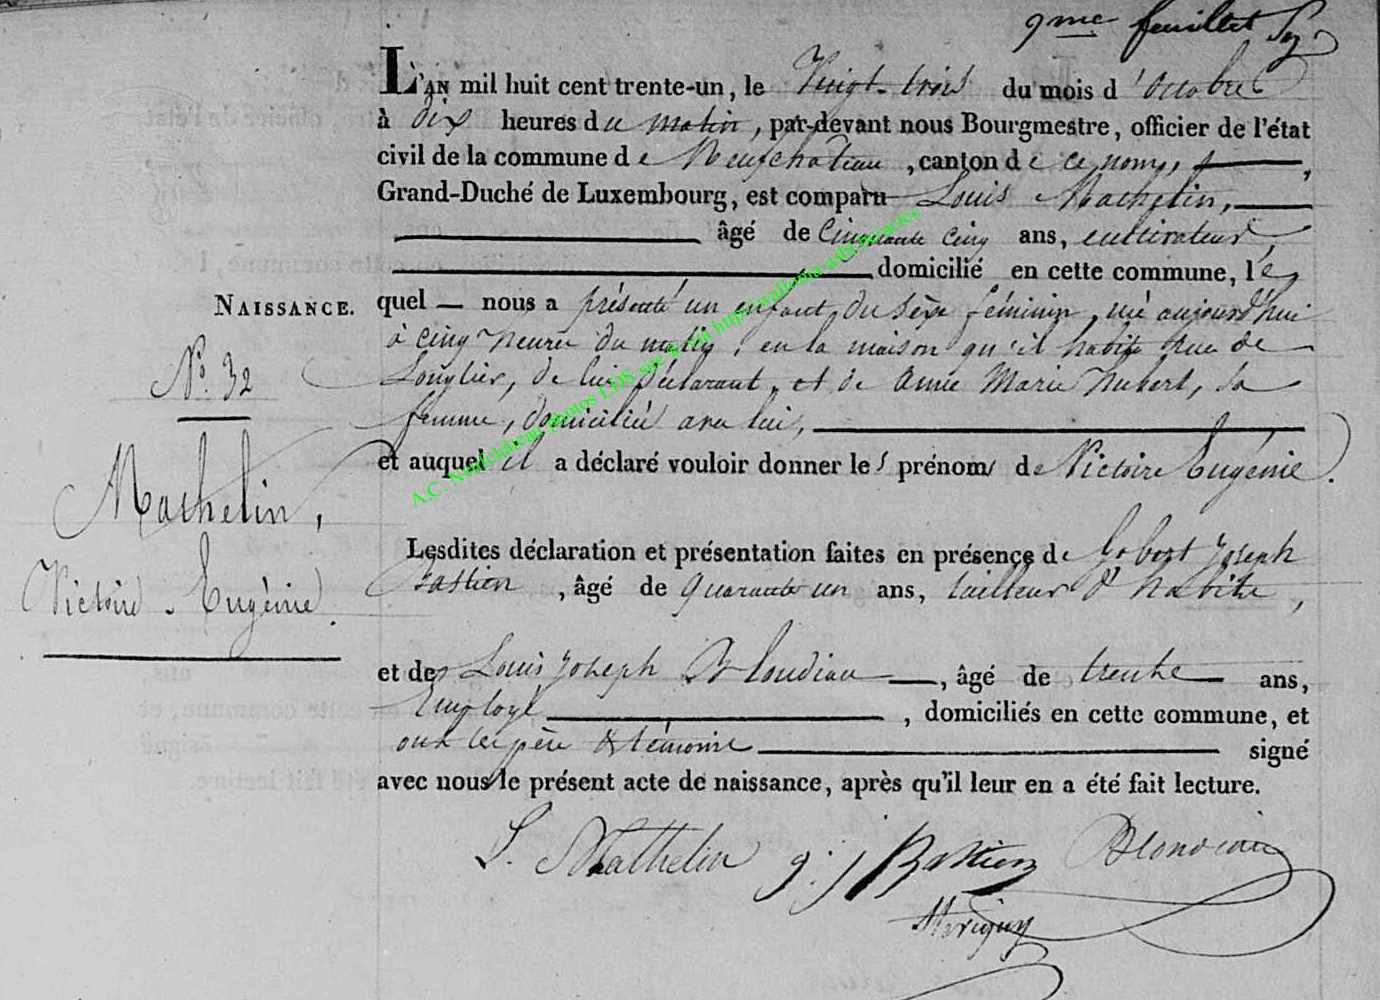 9me feuillet
L'AN mil huit cent trente-un, le Vingt-trois du mois d'Octobre
à dix heures du matin, par-devant nous Bourgmestre, officier de l'état
civil de la commune de Neufchâteau, canton de ce nom,
Grand-Duché de Luxembourg, est comparu Louis Mathelin,
âgé de Cinquante cinq ans, cultivateur,
domicilié en cette commune, le
NAISSANCE. quel nous a présenté un enfant du sèxe féminin, né aujourd'hui
à cinq heures du matin, en la maison qu'il habite rue de
No. 32 Longlier, de lui déclarant, et de Anne Marie Hubert, sa
femme, domiciliée avec lui,
et auquel il a déclaré vouloir donner les prénoms de Victoire Eugénie.
Mathelin,
Victoire-Eugénie.
Lesdites déclaration et présentation faites en présence de Gobert Joseph
Bastien, âgé de quarante un ans, tailleur d'habits,
et de Louis Joseph Blondiau, âgé de trente ans,
Employé, domiciliés en cette commune, et
ont les père & témoins signé
avec nous le présent acte de naissance, après qu'il leur en a été fait lecture.
L. Mathelin g: j Bastien Blondiau
A.C. Neufchâteau photos LDS site via http://wallonia-asbl.be/actes